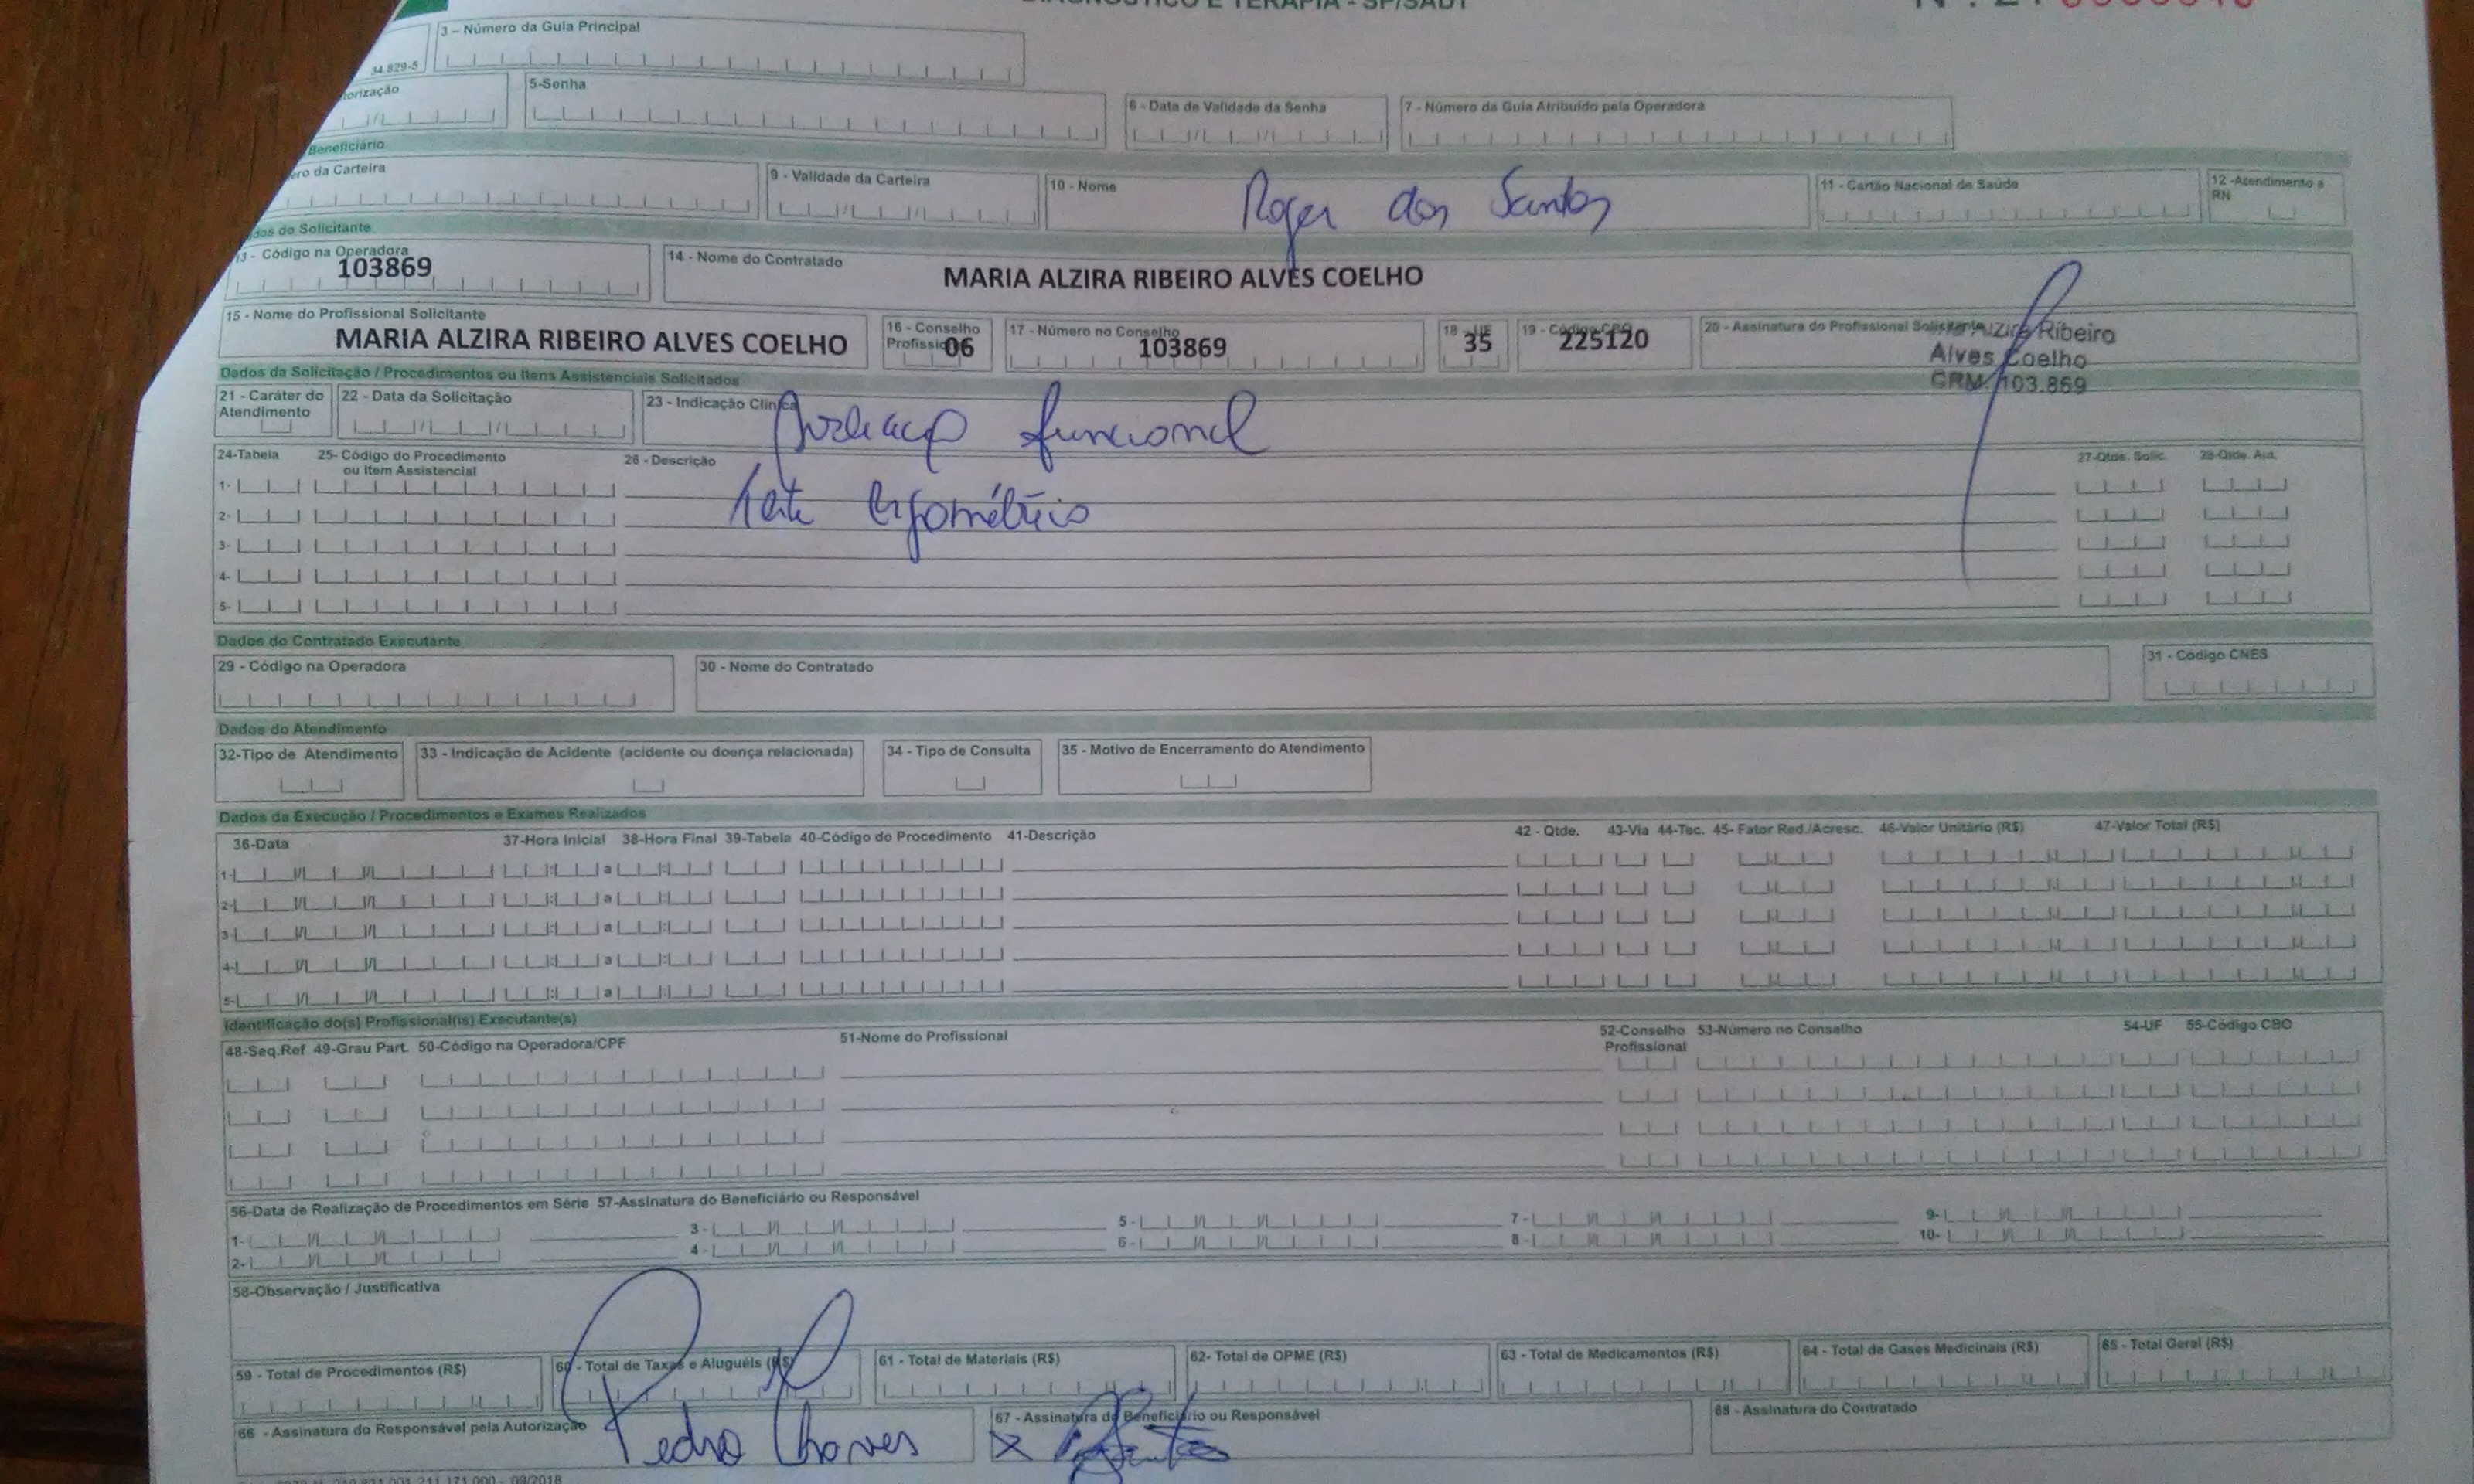 DIAGNÓSTICO E TERAPIA - SP/SADT
3 - Número da Guia Principal
34.829-5
5-Senha
6 - Data de Validade da Senha
7 - Número da Guia Atribuído pela Operadora
Beneficiário
da Carteira
9 - Validade da Carteira
10 - Nome
Roger dos Santos
11 - Cartão Nacional de Saúde
12 -Atendimento a RN
do Solicitante
13 - Código na Operadora
103869
14 - Nome do Contratado
MARIA ALZIRA RIBEIRO ALVES COELHO
15 - Nome do Profissional Solicitante
MARIA ALZIRA RIBEIRO ALVES COELHO
16 - Conselho
06
17 - Número no Conselho
103869
18 - UF
35
19 - Código CBO
225120
20 - Assinatura do Profissional Solicitante
Alzira Ribeiro
Alves Coelho
CRM: 103.869
Dados da Solicitação / Procedimentos ou Itens Assistenciais Solicitados
21 - Caráter do
Atendimento
22 - Data da Solicitação
23 - Indicação Clínica
funcional
24-Tabela
25- Código do Procedimento
ou Item Assistencial
26 - Descrição
27-Qtde. Solic.
28-Qtde. Aut.
1-
2-
3-
4-
5-
Teste Ergométrico
Dados do Contratado Executante
29 - Código na Operadora
30 - Nome do Contratado
31 - Código CNES
Dados do Atendimento
32-Tipo de Atendimento
33 - Indicação de Acidente (acidente ou doença relacionada)
34 - Tipo de Consulta
35 - Motivo de Encerramento do Atendimento
Dados da Execução / Procedimentos e Exames Realizados
36-Data 37-Hora Inicial 38-Hora Final 39-Tabela 40-Código do Procedimento 41-Descrição 42 - Qtde. 43-Via 44-Tec. 45- Fator Red./Acresc. 46-Valor Unitário (R$) 47-Valor Total (R$)
1- a
2- a
3- a
4- a
5- a
Identificação do(s) Profissional(is) Executante(s)
48-Seq.Ref 49-Grau Part. 50-Código na Operadora/CPF 51-Nome do Profissional 52-Conselho Profissional 53-Número no Conselho 54-UF 55-Código CBO
56-Data de Realização de Procedimentos em Série 57-Assinatura do Beneficiário ou Responsável
1- 3- 5- 7- 9-
2- 4- 6- 8- 10-
58-Observação / Justificativa
59 - Total de Procedimentos (R$)
60 - Total de Taxas e Aluguéis (R$)
61 - Total de Materiais (R$)
62- Total de OPME (R$)
63 - Total de Medicamentos (R$)
64 - Total de Gases Medicinais (R$)
65 - Total Geral (R$)
66 - Assinatura do Responsável pela Autorização
Pedro Chaves
67 - Assinatura do Beneficiário ou Responsável
X
68 - Assinatura do Contratado